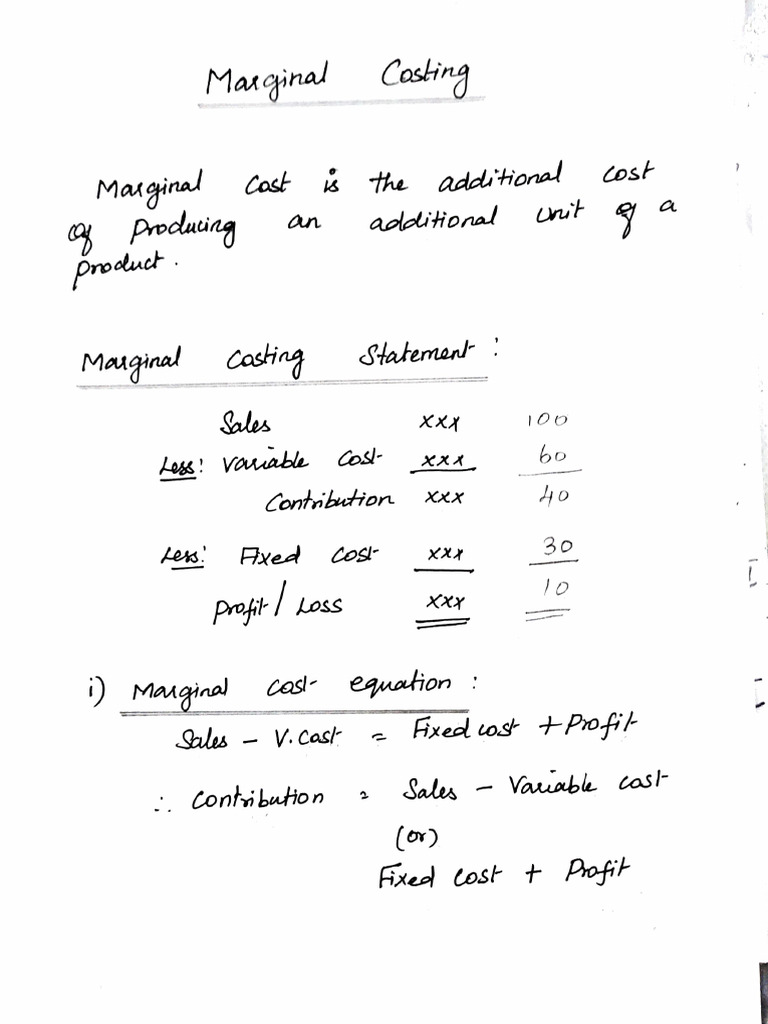 Marginal Costing
Marginal Cost is the additional cost
of Producing an additional unit of a
product.
Marginal Costing Statement:
Sales xxx 100
Less: Variable Cost xxx 60
Contribution xxx 40
Less: Fixed Cost xxx 30
Profit/Loss xxx 10
i) Marginal Cost equation:
Sales - V.Cost = Fixed cost + Profit
∴ Contribution = Sales - Variable cost
(or)
Fixed Cost + Profit